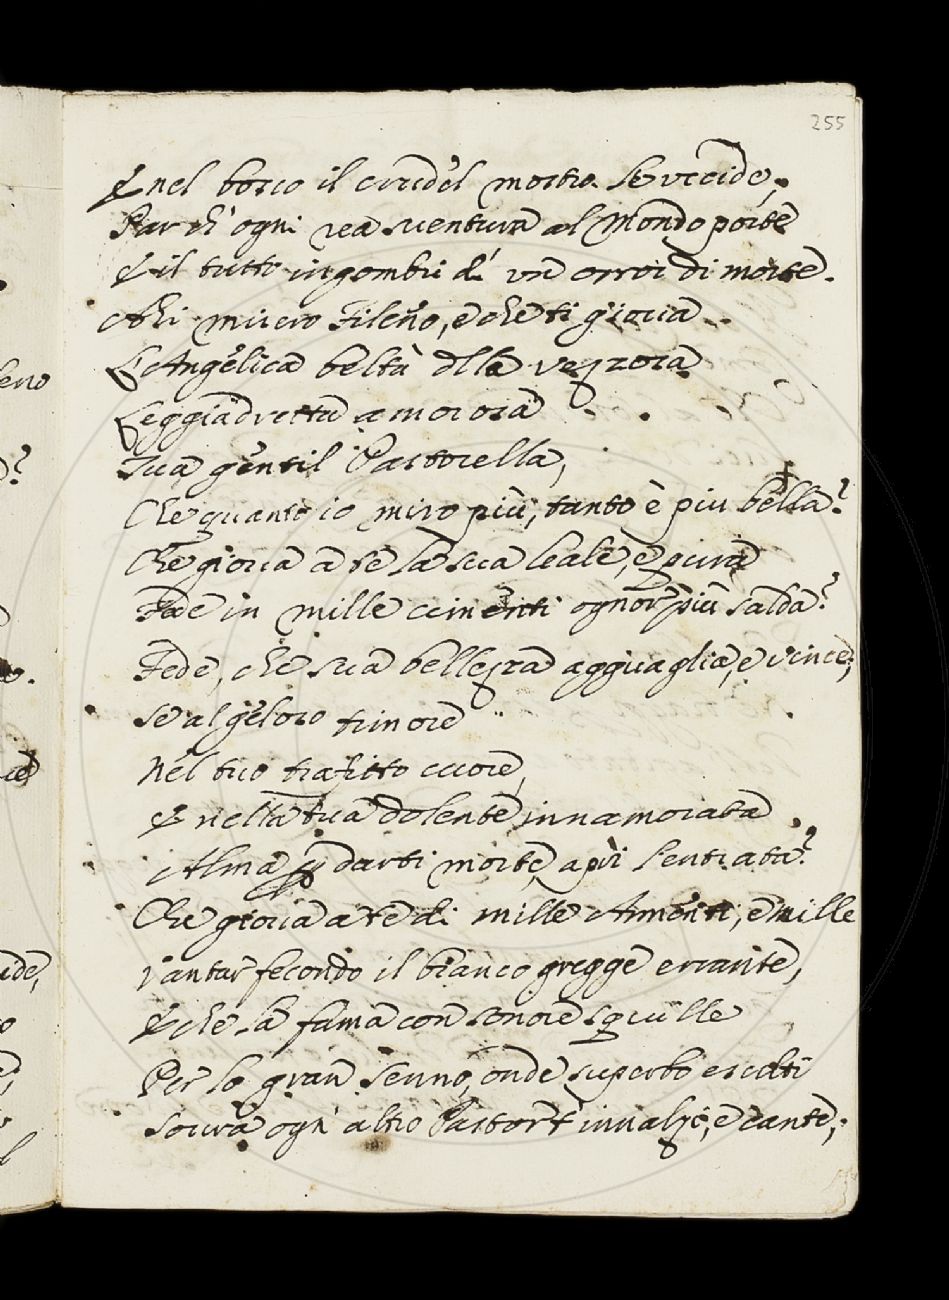 255
E nel bosco il crudel mostro se uccide,
Par ch' ogni rea suentura al Mondo porte
E il tutto ingombri d' un orror di morte.
Ahi misero Fileno, e che ti gioua
L'Angelica beltà della uezzosa
Leggiadretta amorosa
Tua gentil Pastorella,
Che quanto io miro più, tanto è piu bella?
Che gioua a te la sua leale, e pura
Fede in mille cimenti ognor più salda?
Fede, che sua bellezza agguaglia, e vince;
Se al geloso timore
Nel tuo trafitto cuore,
E nella tua dolente innamorata
Alma p darti morte, apri l'entrata?
Che gioua a te di mille Armenti, e mille
Vantar fecondo il bianco gregge errante,
E che la fama con sonore squille
Per lo gran senno, onde superbo esulti
Soura ogn' altro Pastor t' innalzi, e cante;